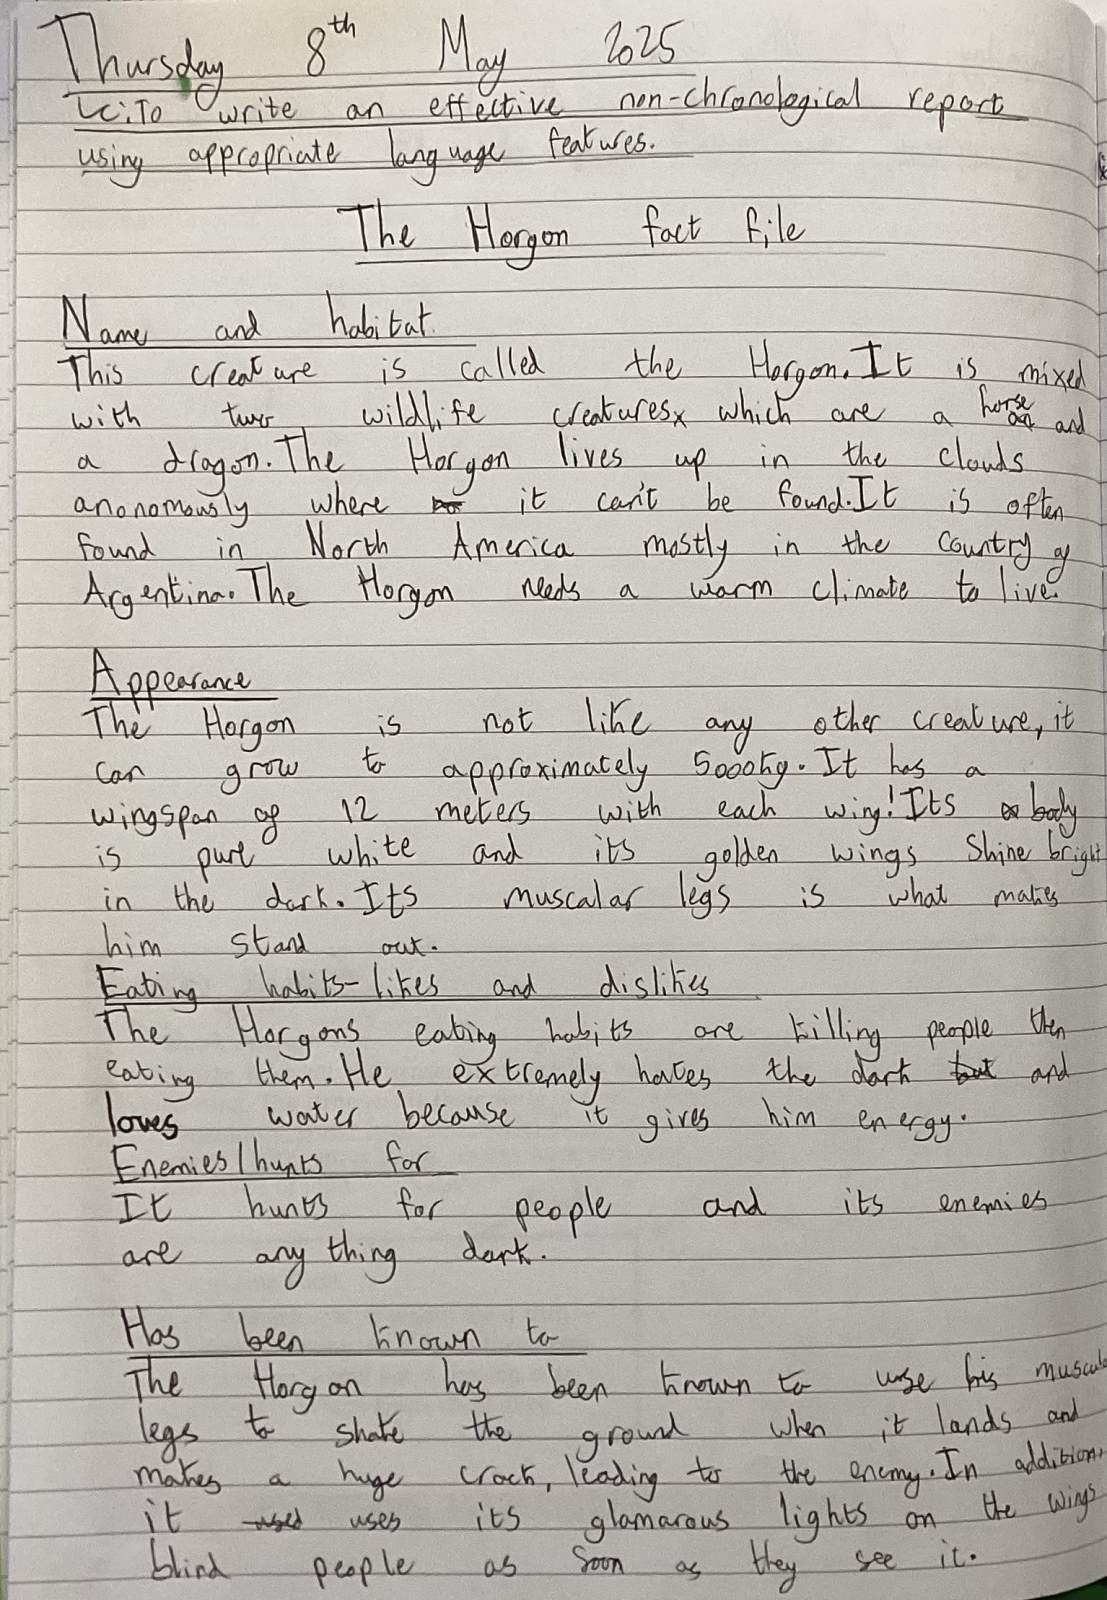 Thursday 8th May 2025
LC: To write an effective non-chronological report
using appropriate language features.
The Horgon fact file
Name and habitat
This creature is called the Horgon. It is mixed
with two wildlife creatures, which are a horse and
a dragon. The Horgon lives up in the clouds
anonomously where it can't be found. It is often
found in North America mostly in the country of
Argentina. The Horgon needs a warm climate to live.
Appearance
The Horgon is not like any other creature, it
can grow to approximately 5000kg. It has a
wingspan of 12 meters with each wing! Its body
is pure white and its golden wings shine bright
in the dark. Its muscalar legs is what makes
him stand out.
Eating habits-likes and dislikes
The Horgons eating habits are killing people then
eating them. He extremely hates the dark but and
loves water because it gives him energy.
Enemies/hunts for
It hunts for people and its enemies
are any thing dark.
Has been known to
The Horgon has been known to use his muscula
legs to shake the ground when it lands and
makes a huge crack, leading to the enemy. In addition,
it used uses its glamarous lights on the wings
blind people as soon as they see it.